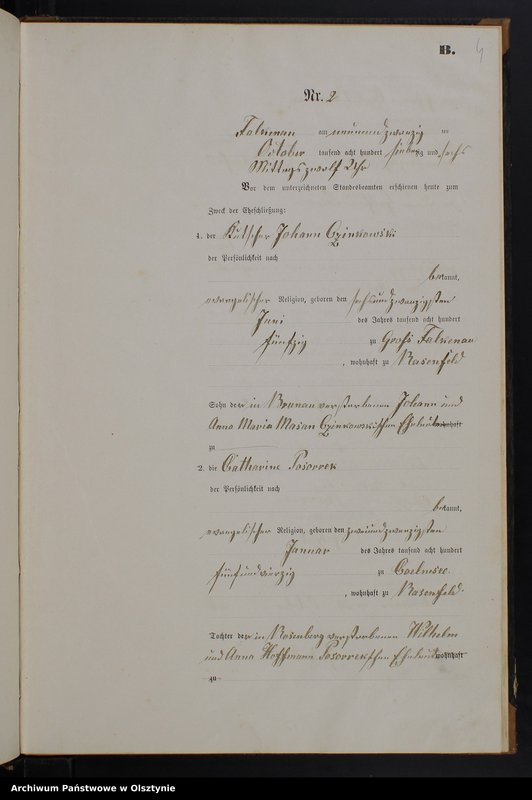 B.
4
Nr. 2
Falkenau am neunundzwanzig ten
October tausend acht hundert siebenzig und sechs
Mittags zwölf Uhr
Vor dem unterzeichneten Standesbeamten erschienen heute zum
Zweck der Eheschließung:
1. der Kutscher Johann Czinkowski
der Persönlichkeit nach
bekannt,
evangelischer Religion, geboren den sechsundzwanzigsten
Juni des Jahres tausend acht hundert
fünfzig zu Groß Falkenau
, wohnhaft zu Rasenfeld
Sohn der in Brunau verstorbenen Johann und
Anna Maria Masan Czinkowskischen Eheleute wohnhaft
zu
2. die Catharine Posorrek
der Persönlichkeit nach
bekannt,
evangelischer Religion, geboren den zweiundzwanzigsten
Januar des Jahres tausend acht hundert
fünfundvierzig zu
, wohnhaft zu Rasenfeld.
Tochter der in Rosenberg verstorbenen Wilhelm
und Anna Hoffmann Posorrekschen Eheleute wohnhaft
zu
Archiwum Państwowe w Olsztynie